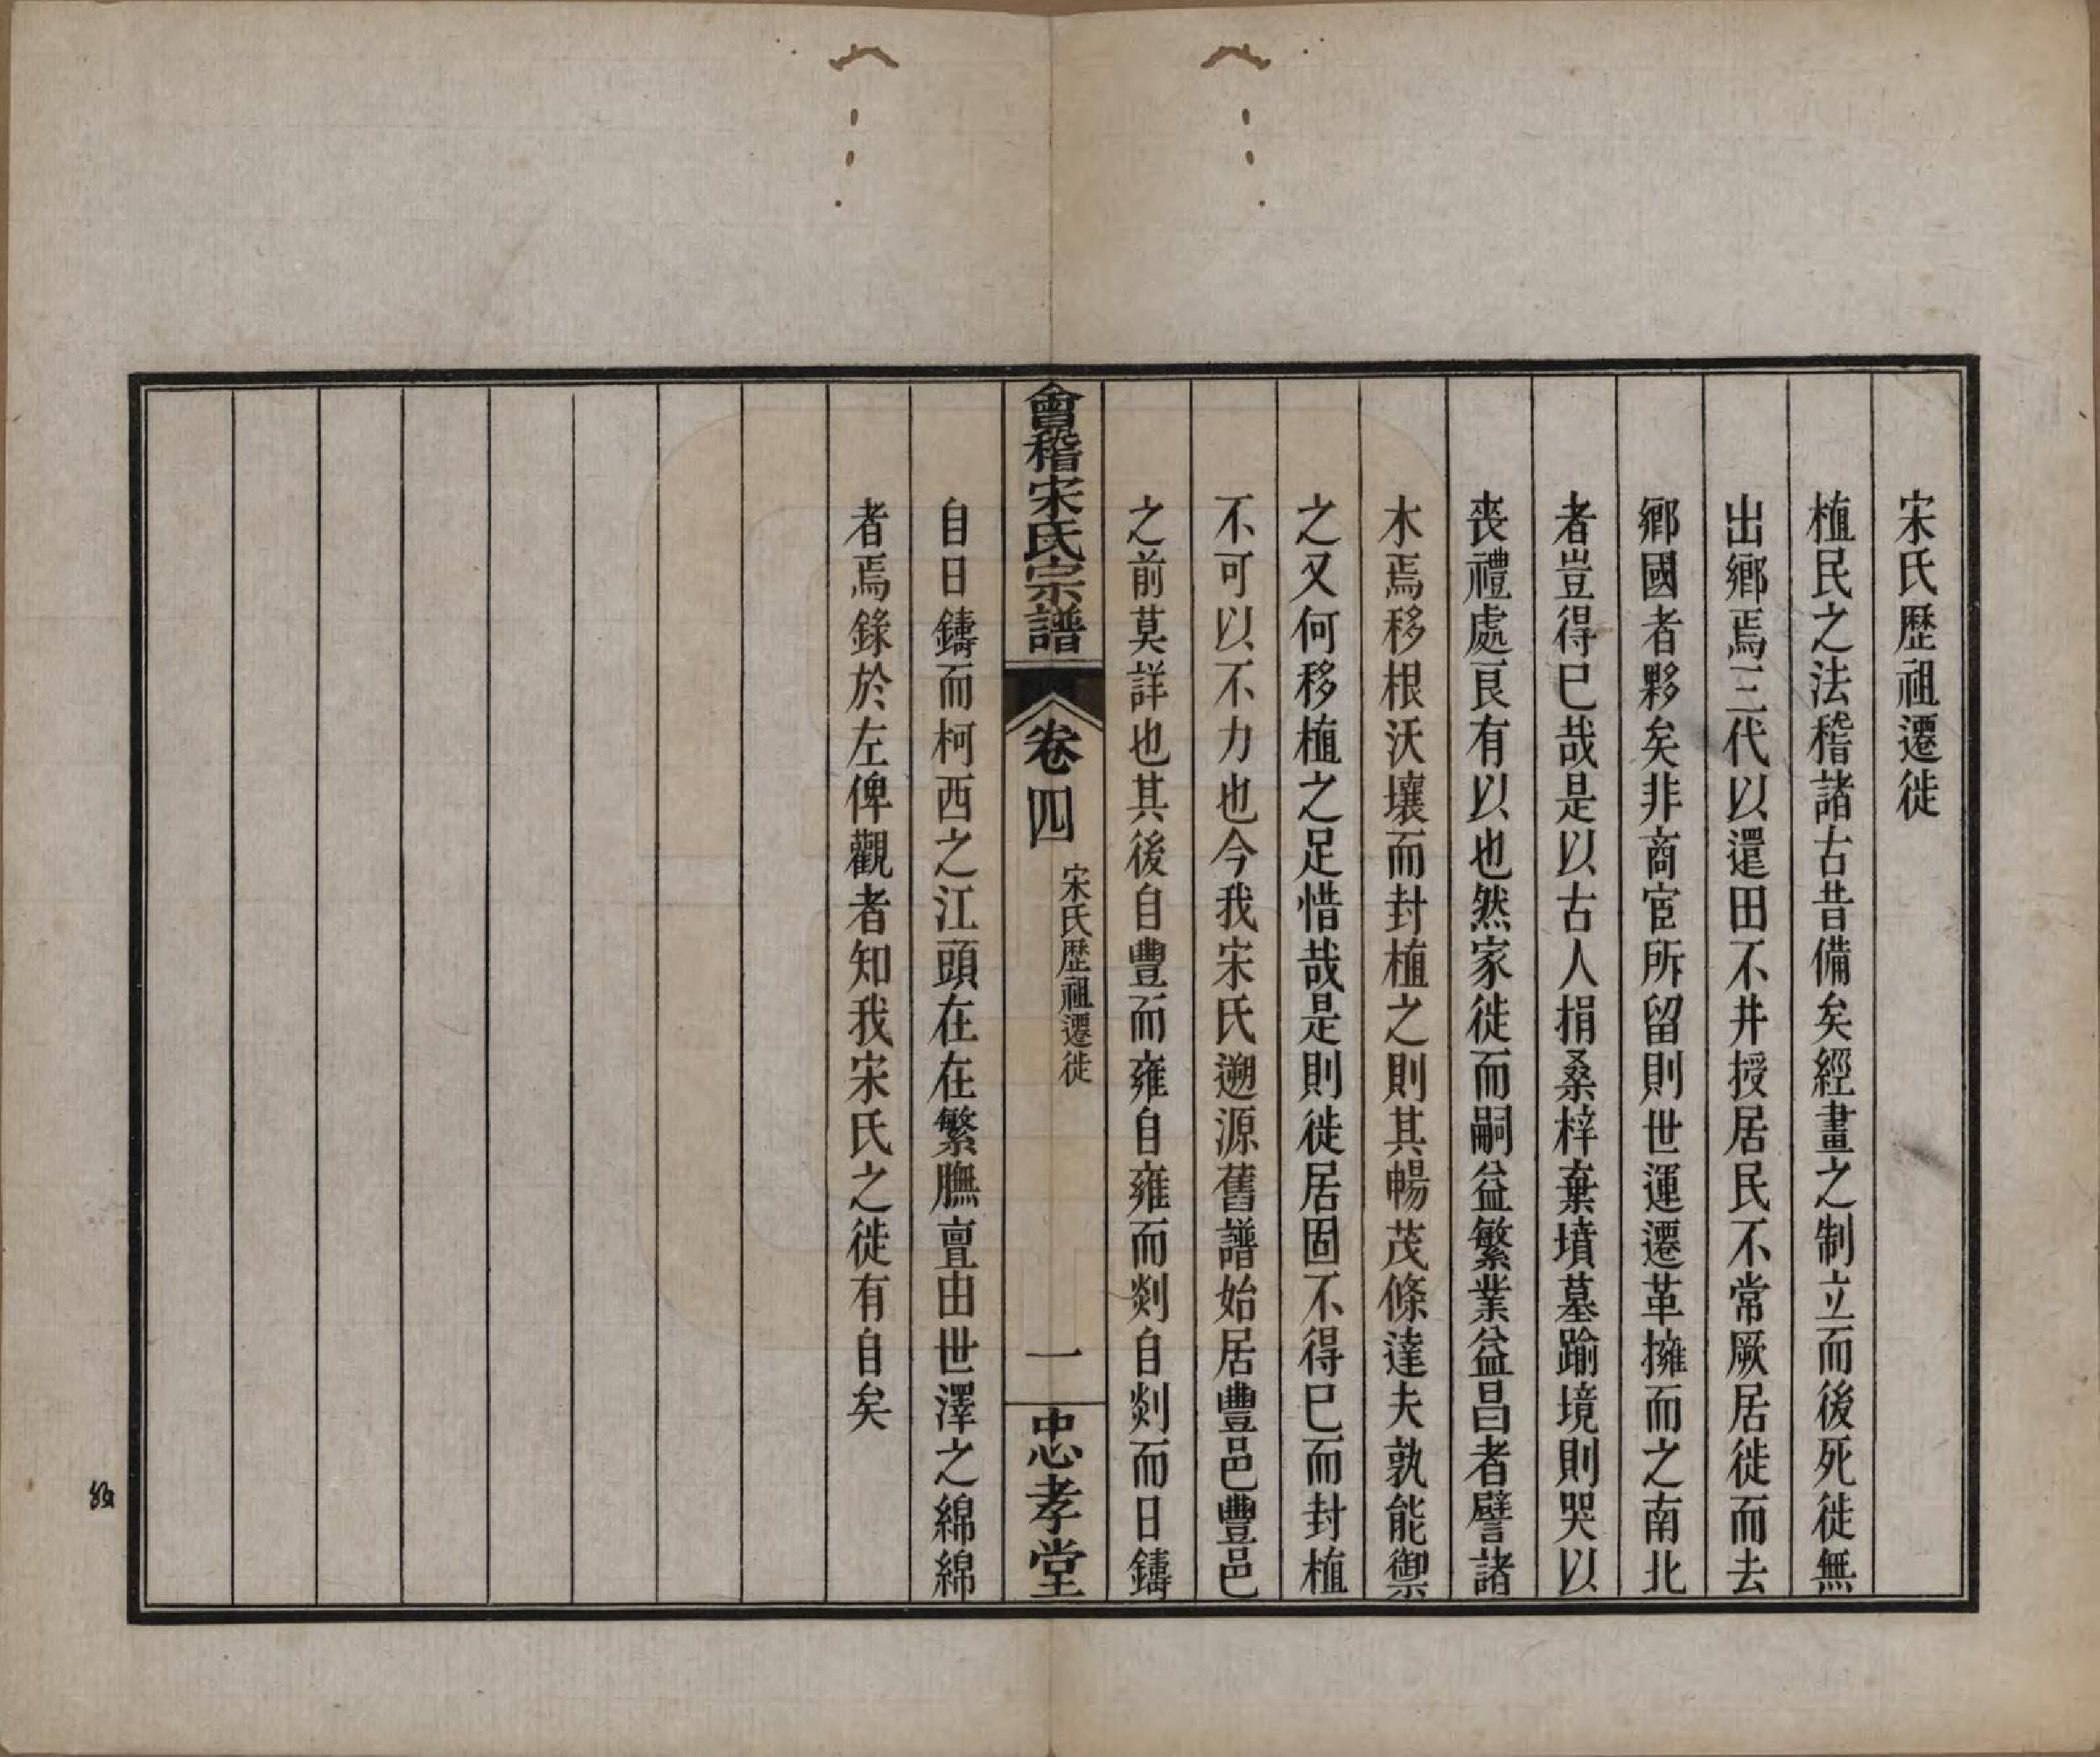 宋氏歷祖遷徙
植民之法稽諸古昔備矣經畫之制立而後死徙無
出鄉焉三代以還田不井授居民不常厥居徙而去
鄉國者夥矣非商宦所留則世運遷革擁而之南北
者豈得已哉是以古人捐桑梓棄墳墓踰境則哭以
喪禮處良有以也然家徙而嗣益繁業益昌者譬諸
木焉移根沃壤而封植之則其暢茂條達夫孰能禦
之又何移植之足惜哉是則徙居固不得已而封植
不可以不力也今我宋氏遡源舊譜始居豐邑豐邑
之前莫詳也其後自豐而雍自雍而剡自剡而日鑄
會稽宋氏宗譜
卷四
宋氏歷祖遷徙
一
忠孝堂
自日鑄而柯西之江頭在在繁膴亶由世澤之綿綿
者焉錄於左俾觀者知我宋氏之徙有自矣